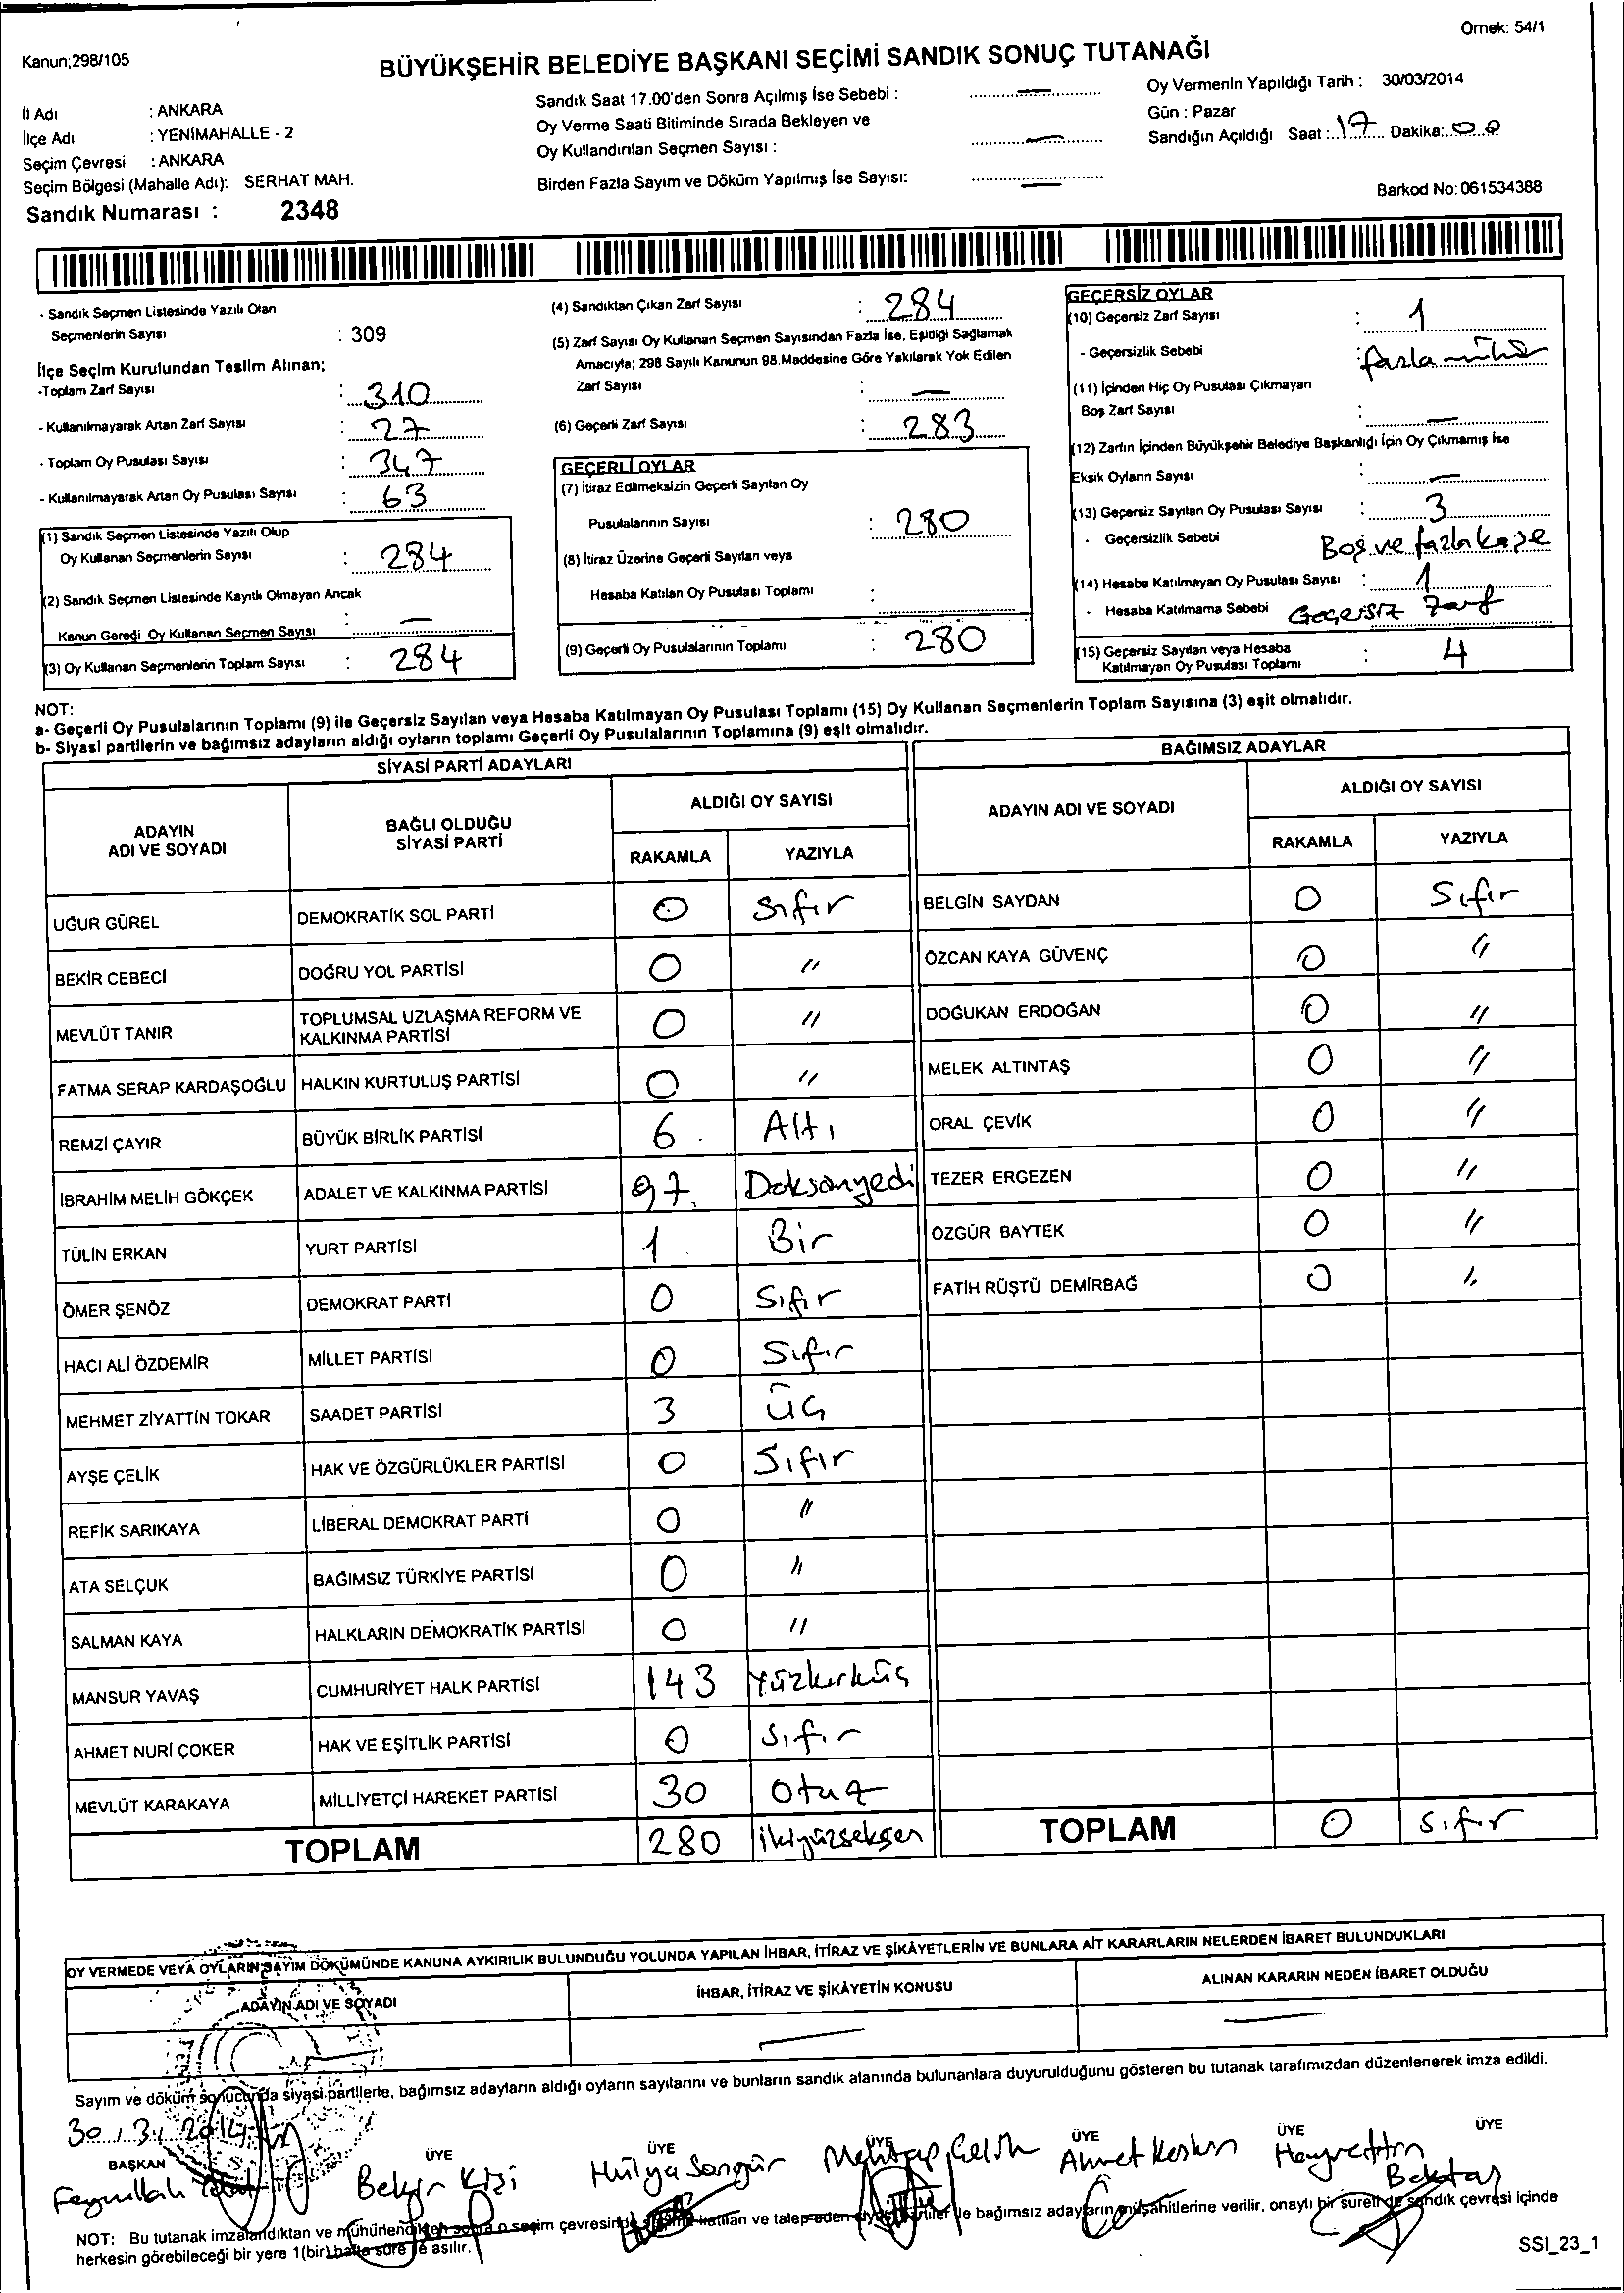 Örnek: 54/1
Kanun;298/105
BÜYÜKŞEHİR BELEDİYE BAŞKANI SEÇİMİ SANDIK SONUÇ TUTANAĞI
İl Adı : ANKARA
İlçe Adı : YENİMAHALLE - 2
Seçim Çevresi : ANKARA
Seçim Bölgesi (Mahalle Adı): SERHAT MAH.
Sandık Numarası : 2348
Sandık Saat 17.00'den Sonra Açılmış İse Sebebi : —
Oy Verme Saati Bitiminde Sırada Bekleyen ve
Oy Kullandırılan Seçmen Sayısı : —
Birden Fazla Sayım ve Döküm Yapılmış İse Sayısı: —
Oy Vermenin Yapıldığı Tarih : 30/03/2014
Gün : Pazar
Sandığın Açıldığı Saat : 17 Dakika: 00
Barkod No: 061534388
- Sandık Seçmen Listesinde Yazılı Olan
Seçmenlerin Sayısı : 309
İlçe Seçim Kurulundan Teslim Alınan;
-Toplam Zarf Sayısı : 310
- Kullanılmayarak Artan Zarf Sayısı : 27
- Toplam Oy Pusulası Sayısı : 347
- Kullanılmayarak Artan Oy Pusulası Sayısı : 63
(1) Sandık Seçmen Listesinde Yazılı Olup
Oy Kullanan Seçmenlerin Sayısı : 284
(2) Sandık Seçmen Listesinde Kayıtlı Olmayan Ancak
Kanun Gereği Oy Kullanan Seçmen Sayısı : —
(3) Oy Kullanan Seçmenlerin Toplam Sayısı : 284
(4) Sandıktan Çıkan Zarf Sayısı : 284
(5) Zarf Sayısı Oy Kullanan Seçmen Sayısından Fazla İse, Eşitliği Sağlamak
Amacıyla; 298 Sayılı Kanunun 98.Maddesine Göre Yakılarak Yok Edilen
Zarf Sayısı : —
(6) Geçerli Zarf Sayısı : 283
GEÇERLİ OYLAR
(7) İtiraz Edilmeksizin Geçerli Sayılan Oy
Pusulalarının Sayısı : 280
(8) İtiraz Üzerine Geçerli Sayılan veya
Hesaba Katılan Oy Pusulası Toplamı :
(9) Geçerli Oy Pusulalarının Toplamı : 280
GEÇERSİZ OYLAR
(10) Geçersiz Zarf Sayısı : 1
- Geçersizlik Sebebi : fazla mühür
(11) İçinden Hiç Oy Pusulası Çıkmayan
Boş Zarf Sayısı : —
(12) Zarfın İçinden Büyükşehir Belediye Başkanlığı İçin Oy Çıkmamış İse
Eksik Oyların Sayısı : —
(13) Geçersiz Sayılan Oy Pusulası Sayısı : 3
- Geçersizlik Sebebi Boş ve fazla kaşe
(14) Hesaba Katılmayan Oy Pusulası Sayısı : 1
- Hesaba Katılmama Sebebi Geçersiz Zarf
(15) Geçersiz Sayılan veya Hesaba
Katılmayan Oy Pusulası Toplamı : 4
NOT:
a- Geçerli Oy Pusulalarının Toplamı (9) ile Geçersiz Sayılan veya Hesaba Katılmayan Oy Pusulası Toplamı (15) Oy Kullanan Seçmenlerin Toplam Sayısına (3) eşit olmalıdır.
b- Siyasi partilerin ve bağımsız adayların aldığı oyların toplamı Geçerli Oy Pusulalarının Toplamına (9) eşit olmalıdır.
SİYASİ PARTİ ADAYLARI
ADAYIN ADI VE SOYADI BAĞLI OLDUĞU SİYASİ PARTİ ALDIĞI OY SAYISI
RAKAMLA YAZIYLA
UĞUR GÜREL DEMOKRATİK SOL PARTİ 0 Sıfır
BEKİR CEBECİ DOĞRU YOL PARTİSİ 0 "
MEVLÜT TANIR TOPLUMSAL UZLAŞMA REFORM VE KALKINMA PARTİSİ 0 "
FATMA SERAP KARDAŞOĞLU HALKIN KURTULUŞ PARTİSİ 0 "
REMZİ ÇAYIR BÜYÜK BİRLİK PARTİSİ 6 Altı
İBRAHİM MELİH GÖKÇEK ADALET VE KALKINMA PARTİSİ 97 Doksanyedi
TÜLİN ERKAN YURT PARTİSİ 1 Bir
ÖMER ŞENÖZ DEMOKRAT PARTİ 0 Sıfır
HACI ALİ ÖZDEMİR MİLLET PARTİSİ 0 Sıfır
MEHMET ZİYATTİN TOKAR SAADET PARTİSİ 3 ÜÇ
AYŞE ÇELİK HAK VE ÖZGÜRLÜKLER PARTİSİ 0 Sıfır
REFİK SARIKAYA LİBERAL DEMOKRAT PARTİ 0 "
ATA SELÇUK BAĞIMSIZ TÜRKİYE PARTİSİ 0 "
SALMAN KAYA HALKLARIN DEMOKRATİK PARTİSİ 0 "
MANSUR YAVAŞ CUMHURİYET HALK PARTİSİ 143 Yüzkırküç
AHMET NURİ ÇOKER HAK VE EŞİTLİK PARTİSİ 0 Sıfır
MEVLÜT KARAKAYA MİLLİYETÇİ HAREKET PARTİSİ 30 Otuz
TOPLAM 280 İkiyüzseksen
BAĞIMSIZ ADAYLAR
ADAYIN ADI VE SOYADI ALDIĞI OY SAYISI
RAKAMLA YAZIYLA
BELGİN SAYDAN 0 Sıfır
ÖZCAN KAYA GÜVENÇ 0 "
DOĞUKAN ERDOĞAN 0 "
MELEK ALTINTAŞ 0 "
ORAL ÇEVİK 0 "
TEZER ERGEZEN 0 "
ÖZGÜR BAYTEK 0 "
FATİH RÜŞTÜ DEMİRBAĞ 0 "
TOPLAM 0 Sıfır
OY VERMEDE VEYA OYLARIN SAYIM DÖKÜMÜNDE KANUNA AYKIRILIK BULUNDUĞU YOLUNDA YAPILAN İHBAR, İTİRAZ VE ŞİKÂYETLERİN VE BUNLARA AİT KARARLARIN NELERDEN İBARET BULUNDUKLARI
ADAYIN ADI VE SOYADI İHBAR, İTİRAZ VE ŞİKÂYETİN KONUSU ALINAN KARARIN NEDEN İBARET OLDUĞU
— — —
Sayım ve döküm sonucunda siyasi partilerle, bağımsız adayların aldığı oyların sayılarını ve bunların sandık alanında bulunanlara duyurulduğunu gösteren bu tutanak tarafımızdan düzenlenerek imza edildi.
30 / 3 / 2014
BAŞKAN ÜYE ÜYE ÜYE ÜYE ÜYE ÜYE
Feyzullah Bekir Kişi Hülya Songür Mehtap Çelik Ahmet Keskin Hayrettin Bektaş
NOT: Bu tutanak imzalandıktan ve mühürlendikten sonra o seçim çevresinde katılan ve talep eden siyasi partiler ile bağımsız adayların müşahitlerine verilir, onaylı bir sureti de sandık çevresi içinde
herkesin görebileceği bir yere 1(bir) hafta süre ile asılır.
SSI_23_1